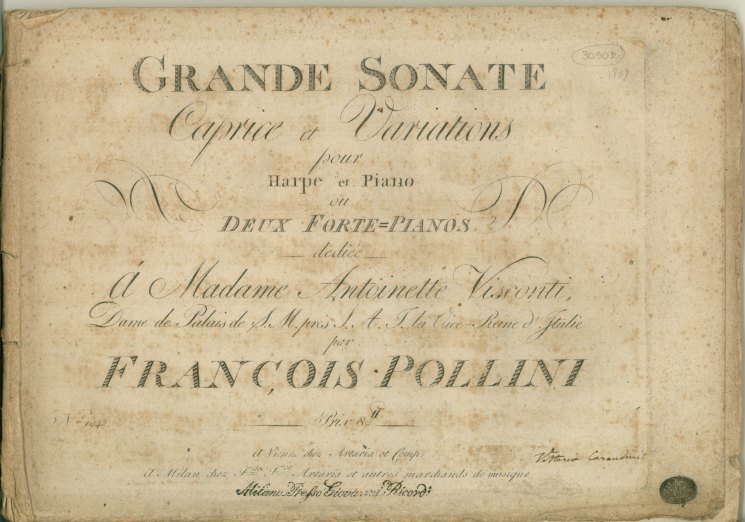 30902
1807
GRANDE SONATE
Caprice et Variations
pour
Harpe et Piano
ou
DEUX FORTE=PIANOS
dediée
à Madame Antoinette Visconti,
Dame de Palais de S. M. près S. A. I. la Vice-Reine d'Italie
par
FRANÇOIS POLLINI
No. 1943 Prix 8
à Vienne chez Artaria et Comp.
à Milan chez Artaria et autres marchands de musique
Milano Presso Giovanni Ricordi
Vittorio